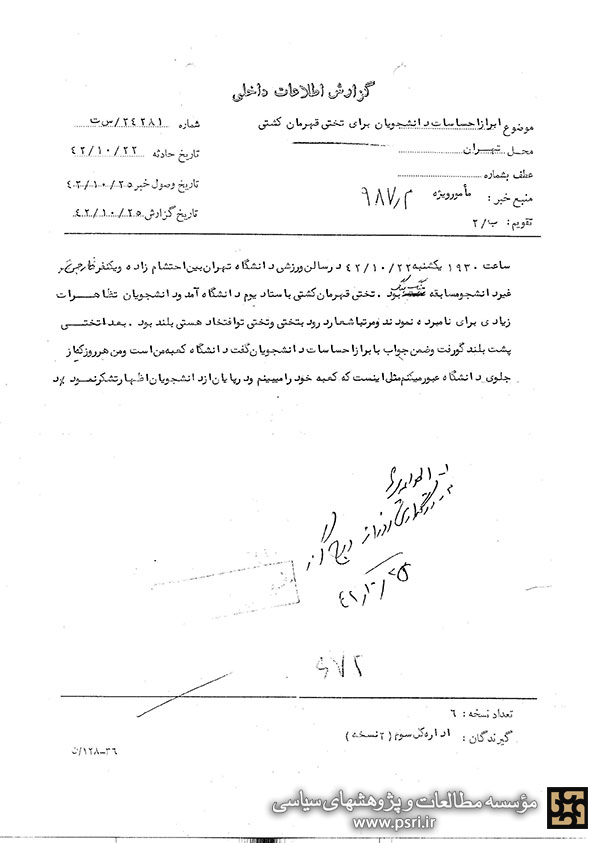 گزارش اطلاعات داخلی
موضوع ابراز احساسات دانشجویان برای تختی قهرمان کشتی
شماره ۲۴۲۸۱/س ت
محل تهران
تاریخ حادثه ۴۲/۱۰/۲۲
عطف بشماره
تاریخ وصول خبر ۴۲/۱۰/۲۵
منبع خبر : مأمور ویژه ۹۸۷ م
تاریخ گزارش ۴۲/۱۰/۲۵
تقویم : ب/۲
ساعت ۱۹۳۰ یکشنبه ۴۲/۱۰/۲۲ در سالن ورزشی دانشگاه تهران بین احتشام زاده و یکنفر خارجی
غیر دانشجو مسابقه بود . تختی قهرمان کشتی با ستادیوم دانشگاه آمد و دانشجویان تظاهرات
زیادی برای نامبرده نمودند و مرتبا شعار درود بتختی و تختی تو افتخاد هستی بلند بود . بعدا تختی
پشت بلند گو رفت و ضمن جواب با براز احساسات دانشجویان گفت دانشگاه کعبه من است و من هر روز که از
جلوی دانشگاه عبور میکنم مثل اینست که کعبه خود را میبینم و در پایان از دانشجویان اظهار تشکر نمود
۶۷۲
تعداد نسخه : ۶
گیرندگان : اداره کل سوم (۲ نسخه)
۳۶-۱۲۸/ن
مؤسسه مطالعات و پژوهشهای سیاسی
www.psri.ir